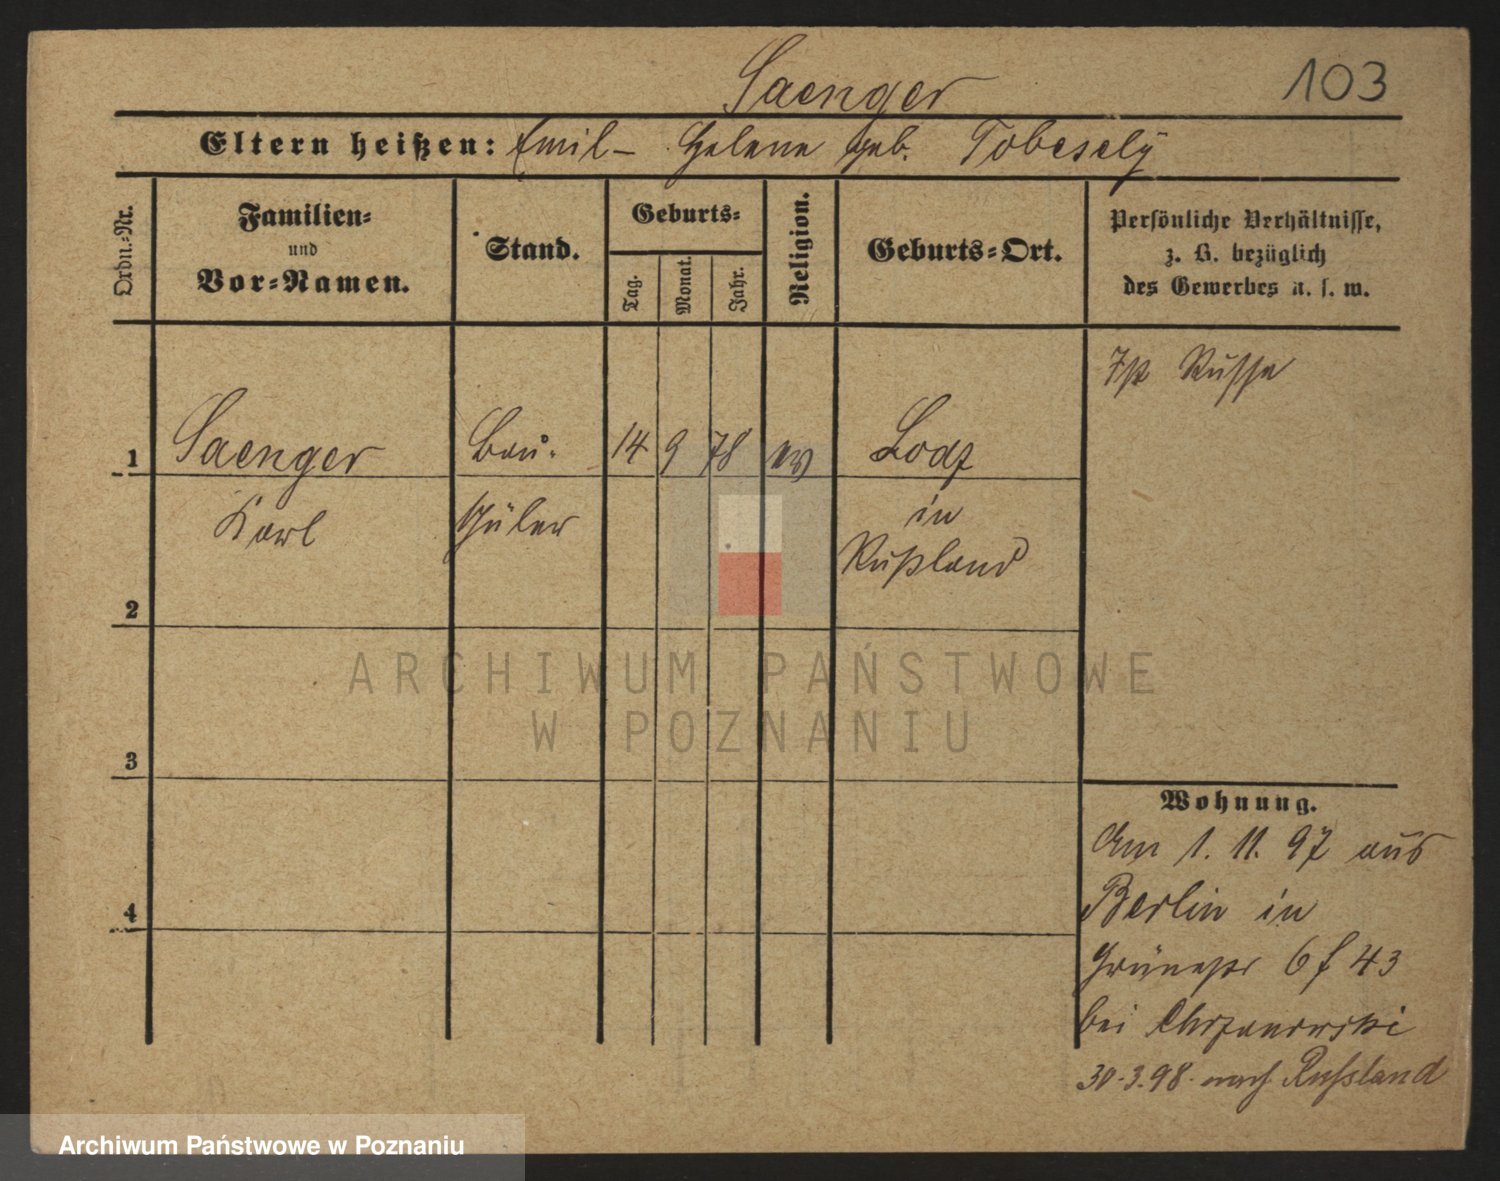 Saenger
103
Eltern heißen: Emil – Helene geb. Tobesely
Ordn.-Nr.
Familien-
und
Vor-Namen.
Stand.
Geburts-
Tag.
Monat.
Jahr.
Religion.
Geburts-Ort.
Persönliche Verhältnisse,
z. B. bezüglich
des Gewerbes u. s. w.
Ist Russe
1 Saenger Bau- 14 9 78 ev Lodz
Karl Schüler in
Rußland
2
3
4
Wohnung.
Am 1. 11. 97 aus
Berlin in
6 43
bei Chrzanowski
30.3.98 nach Russland
ARCHIWUM PAŃSTWOWE
W POZNANIU
Archiwum Państwowe w Poznaniu